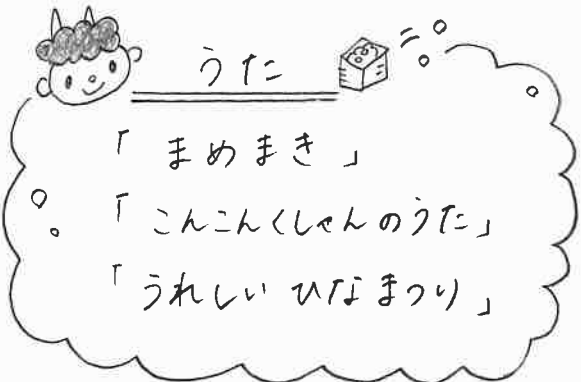 うた
「まめまき」
「こんこんくしゃんのうた」
「うれしい ひなまつり」